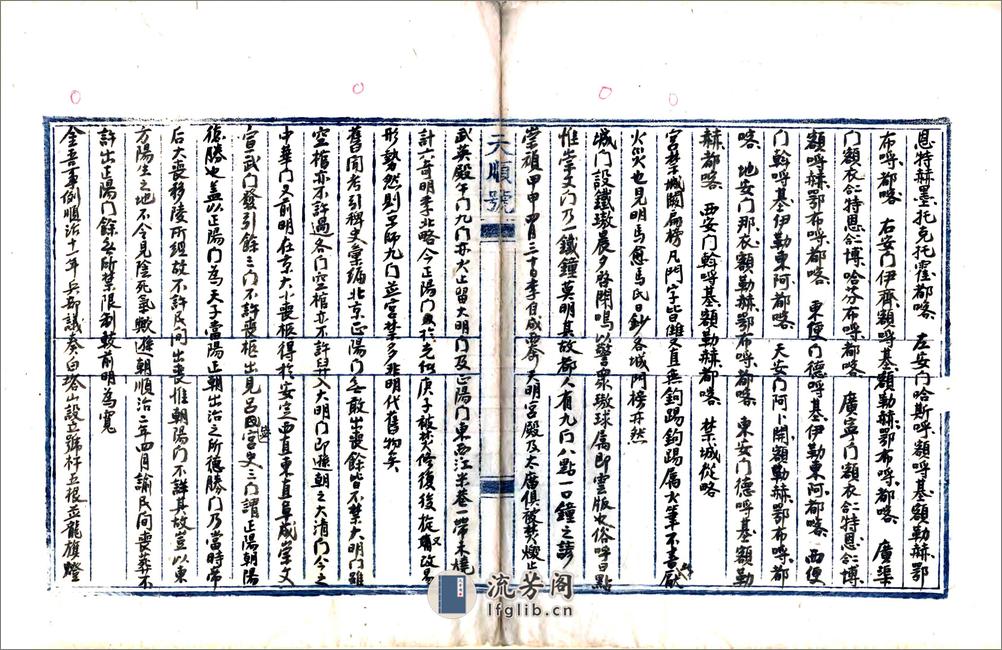 恩特赫墨托克托霍都喀 左安門哈斯呼額呼基額勒赫鄂
布呼都喀 右安門伊齊額呼基額勒赫鄂布呼都喀 廣渠
門額衣仁特恩仁博哈芬布呼都喀 廣寧門額衣仁特恩仁博
額呼赫鄂布呼都喀 東便門德呼基伊勒東阿都喀 西便
門斡呼基伊勒東阿都喀 天安門阿卜開額勒赫鄂布呼都
喀 地安門那衣額勒赫鄂布呼都喀 東安門德呼基額勒
赫都喀 西安門斡呼基額勒赫都喀 禁城從略
宮禁城闕扁榜凡門字皆雄又直無鉤踢鉤踢屬火筆不書厭
火災也見明馬愈馬氏日鈔各城門榜亦然
城門設鐵璈晨夕啓閉鳴以警眾璈球屬即雲版也俗呼曰點
惟崇文門乃一鐵鐘莫明其故都人有九門八點一口鐘之諺
崇禎甲申四月三十日李自成西奔 天明宮殿及太廟俱被焚燬止
武英殿午門九門亦火止留大明門及正陽門東西江米巷一帶未燒
計六奇明季北略今正陽門 光緒庚子被焚修復後旋 改易
形勢然則京師九門並宮禁多非明代舊物矣
舊聞考引稗史彙編北京正陽門無敢出喪餘皆不禁大明門雖
空棺亦不許過各門空棺亦不許舁入大明門即遜朝之大清門今之
中華門又前明在京大小喪柩得於安定西直東直阜成崇文
宣武門發引餘三門不許喪柩出見呂毖宮史三門謂正陽朝陽
德勝也蓋以正陽門為天子當陽正朝出治之所德勝門乃當時帝
后大喪移陵所經故不許民間出喪惟朝陽門不詳其故豈以東
方陽生之地不令見陰死氣歟遜朝順治二年四月諭民間喪葬不
許出正陽門餘無所禁限制較前明為寬
金吾事例順治十一年兵部議奏白塔山設立號杆五根並龍旗燈
天順號
流芳阁
lfglib.cn